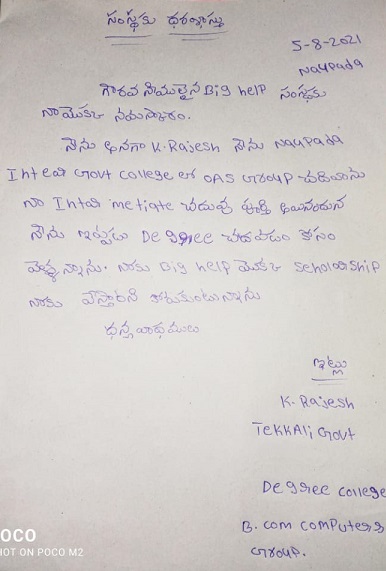 సంస్థకు ధరఖాస్తు
5-8-2021
Naupada
గౌరవ నీయులైన Big help సంస్థకు
నా యొక్క నమస్కారం.
నేను అనగా K. Rajesh నేను Naupada
Inter Govt college లో OAS Group చదివాను
నా Inter metiate చదువు పూర్తి అయినందున
నేను ఇప్పుడు Deggree చదవడం కోసం
వెళ్ళున్నాను. నాకు Big help యొక్క Scholarship
నాకు వేస్తారని కోరుకుంటున్నాను
ధన్యవాధములు
ఇట్లు
K. Rajesh
Tekkali, Govt
Deggree college
B. com computers
Group.
OCO
HOT ON POCO M2